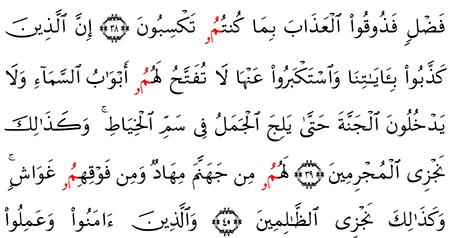 فَضْلٍ فَذُوقُوا۟ ٱلْعَذَابَ بِمَا كُنتُمُۥ تَكْسِبُونَ ﴿٣٨﴾ إِنَّ ٱلَّذِينَ
كَذَّبُوا۟ بِـَٔايَـٰتِنَا وَٱسْتَكْبَرُوا۟ عَنْهَا لَا تُفَتَّحُ لَهُمُۥ أَبْوَٰبُ ٱلسَّمَآءِ وَلَا
يَدْخُلُونَ ٱلْجَنَّةَ حَتَّىٰ يَلِجَ ٱلْجَمَلُ فِى سَمِّ ٱلْخِيَاطِ ۚ وَكَذَٰلِكَ
نَجْزِى ٱلْمُجْرِمِينَ ﴿٣٩﴾ لَهُمُۥ مِن جَهَنَّمَ مِهَادٌ وَمِن فَوْقِهِمُۥ غَوَاشٍ ۚ
وَكَذَٰلِكَ نَجْزِى ٱلظَّـٰلِمِينَ ﴿٤٠﴾ وَٱلَّذِينَ ءَامَنُوا۟ وَعَمِلُوا۟